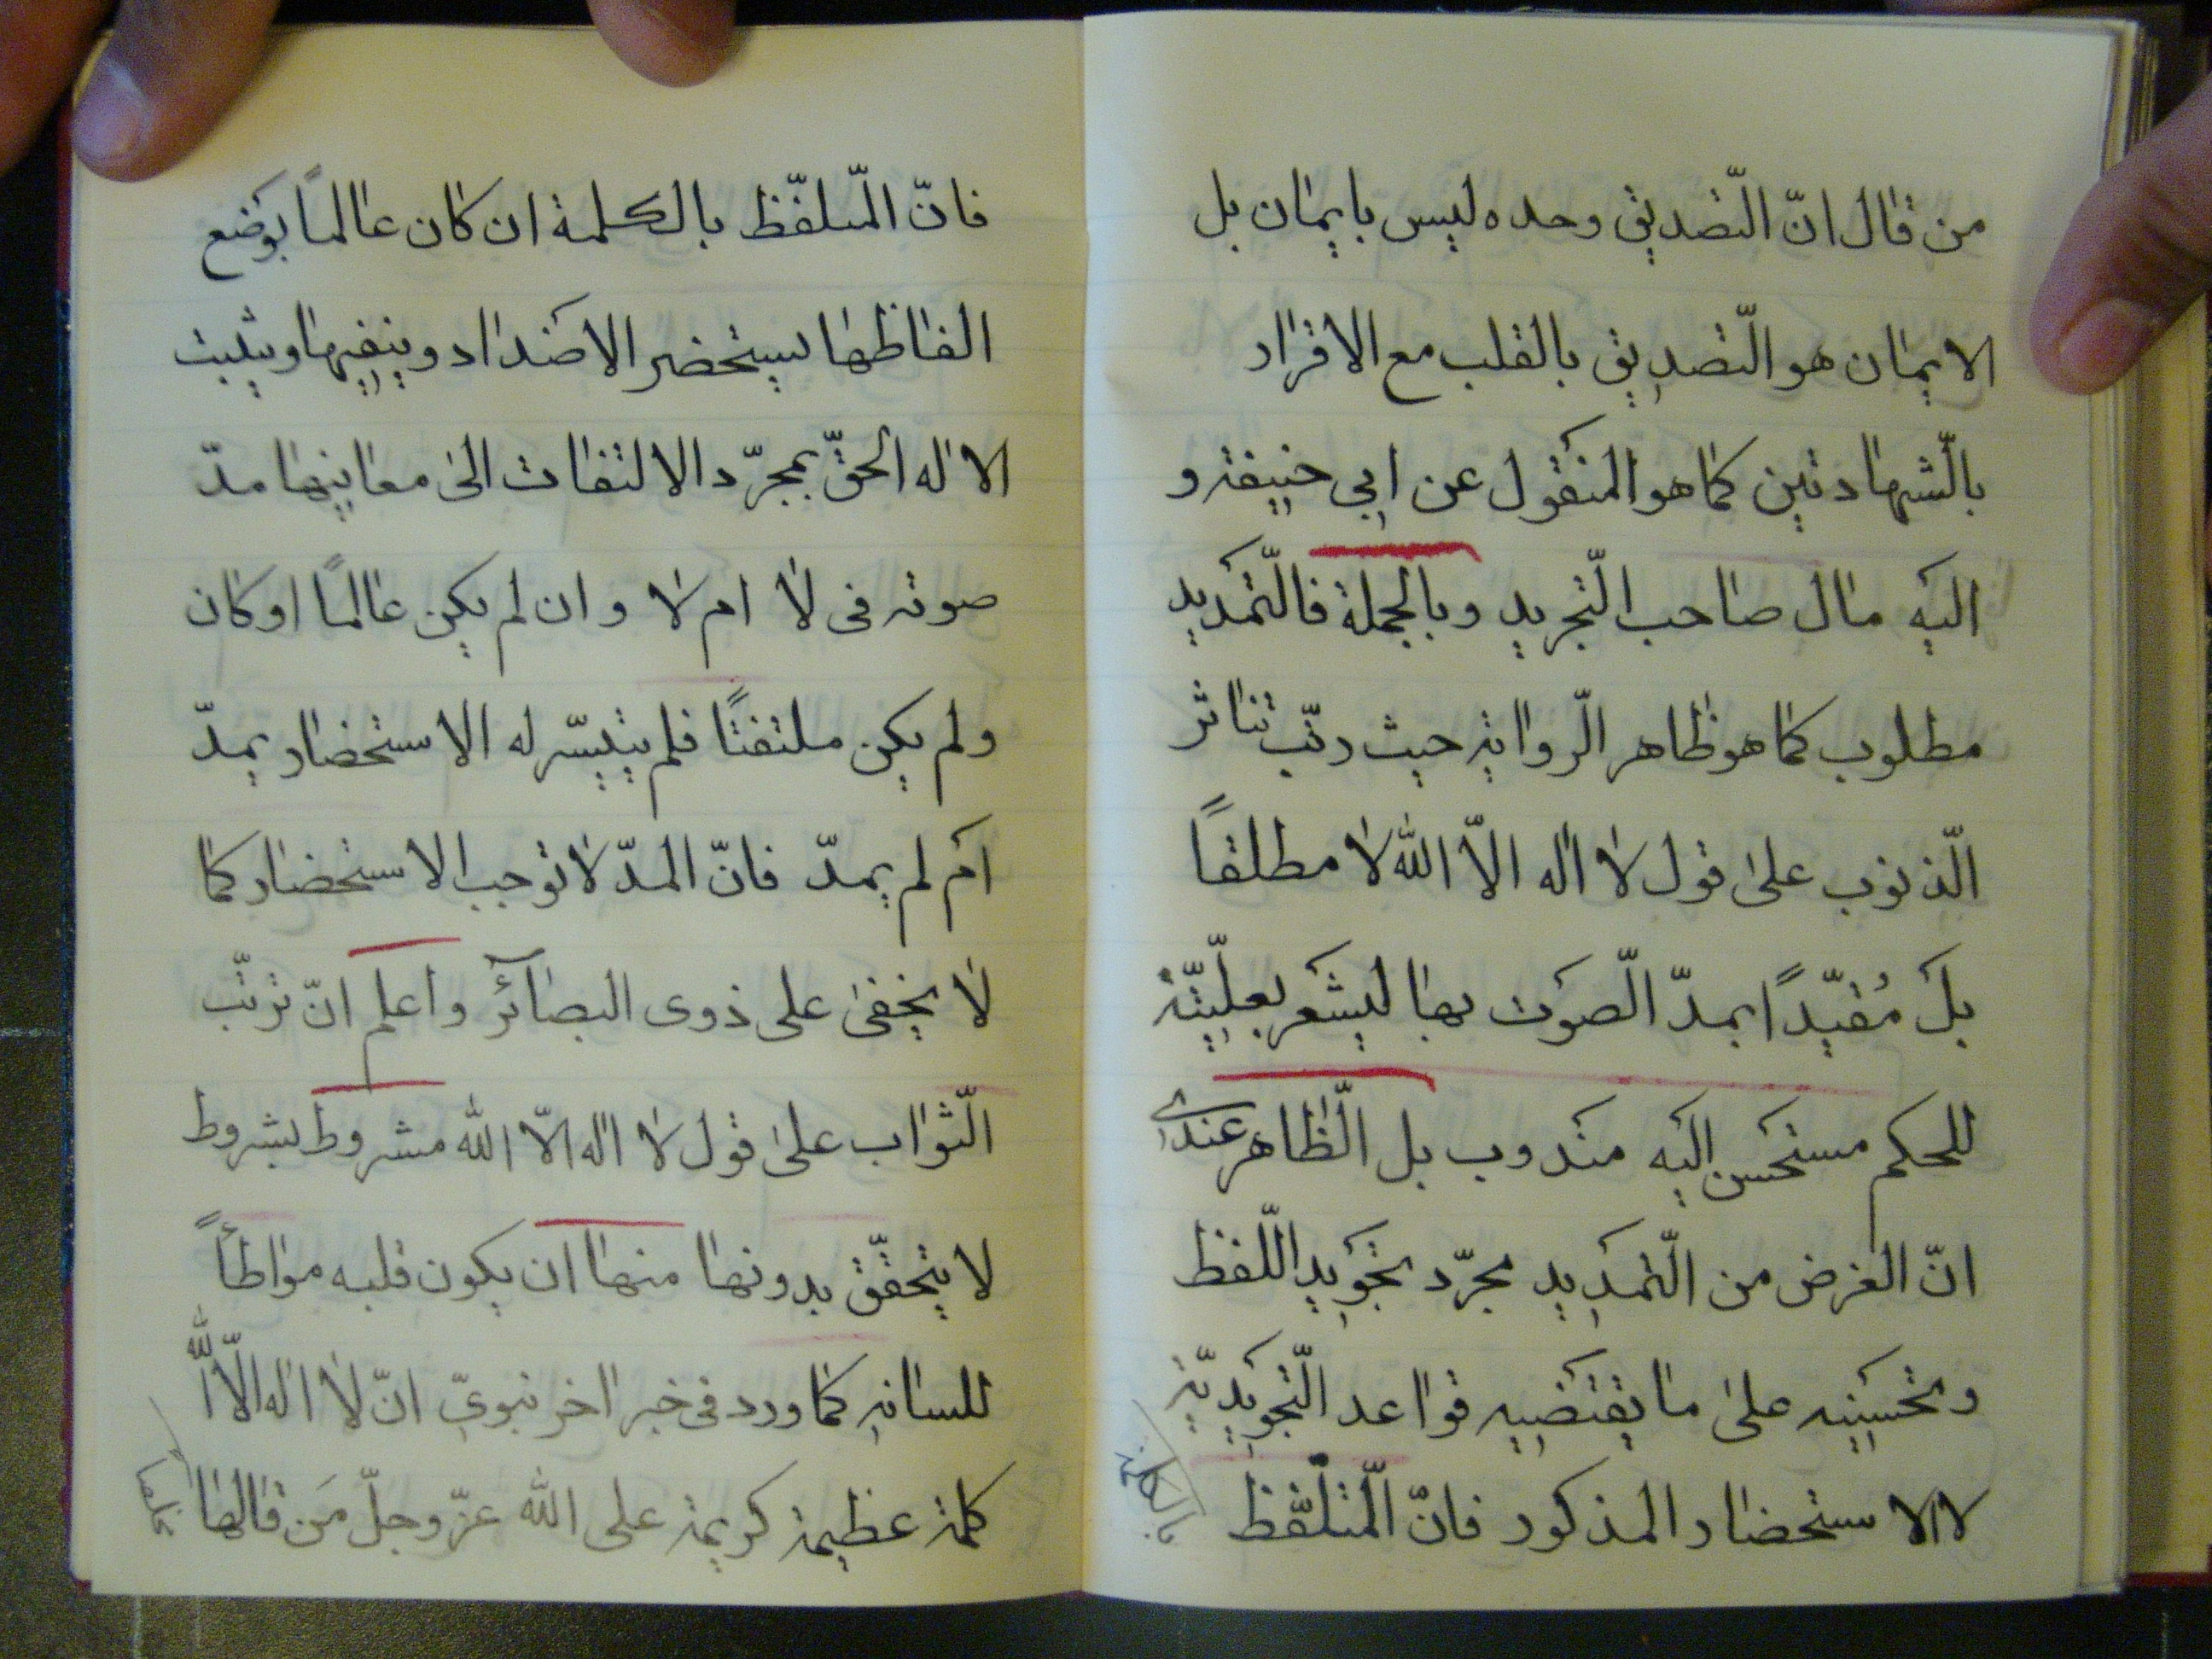 من قال انّ التّصديق وحده ليس بايمان بل
الايمان هو التّصديق بالقلب مع الاقرار
بالشّهادتين كما هو المنقول عن ابي حنيفة و
اليه مال صاحب التّجريد وبالجملة فالتّمديد
مطلوب كما هو ظاهر الرّواية حيث رتّب تناثر
الذّنوب على قول لا اله الاّ الله لا مطلقاً
بل مُقيّداً بمدّ الصّوت بها ليشعر بعليّة
للحكم مستحسن اليه مندوب بل الظّاهر عندى
انّ الغرض من التّمديد مجرّد تجويد اللّفظ
وتحسينه على ما يقتضيه قواعد التّجويديّة
لا الاستحضار المذكور فانّ المتلفّظ
بالكلمة
فانّ المتلفّظ بالكلمة ان كان عالماً بوضع
الفاظها يستحضر الاضداد وينفيها ويثبت
الاله الحقّ بمجرّد الالتفات الى معانيها مدّ
صوته فى لا ام لا وان لم يكن عالماً او كان
ولم يكن ملتفتاً فلم يتيسّر له الاستحضار يمدّ
ام لم يمدّ فانّ المدّ لا توجب الاستحضار كما
لا يخفى على ذوى البصائر واعلم انّ ترتّب
الثّواب على قول لا اله الاّ الله مشروط بشروط
لا يتحقّق بدونها منها ان يكون قلبه مواطأً
للسانه كما ورد فى خبر اخر نبويّ انّ لا اله الاّ الله
كلمة عظيمة كريمة على الله عزّ وجلّ من قالها